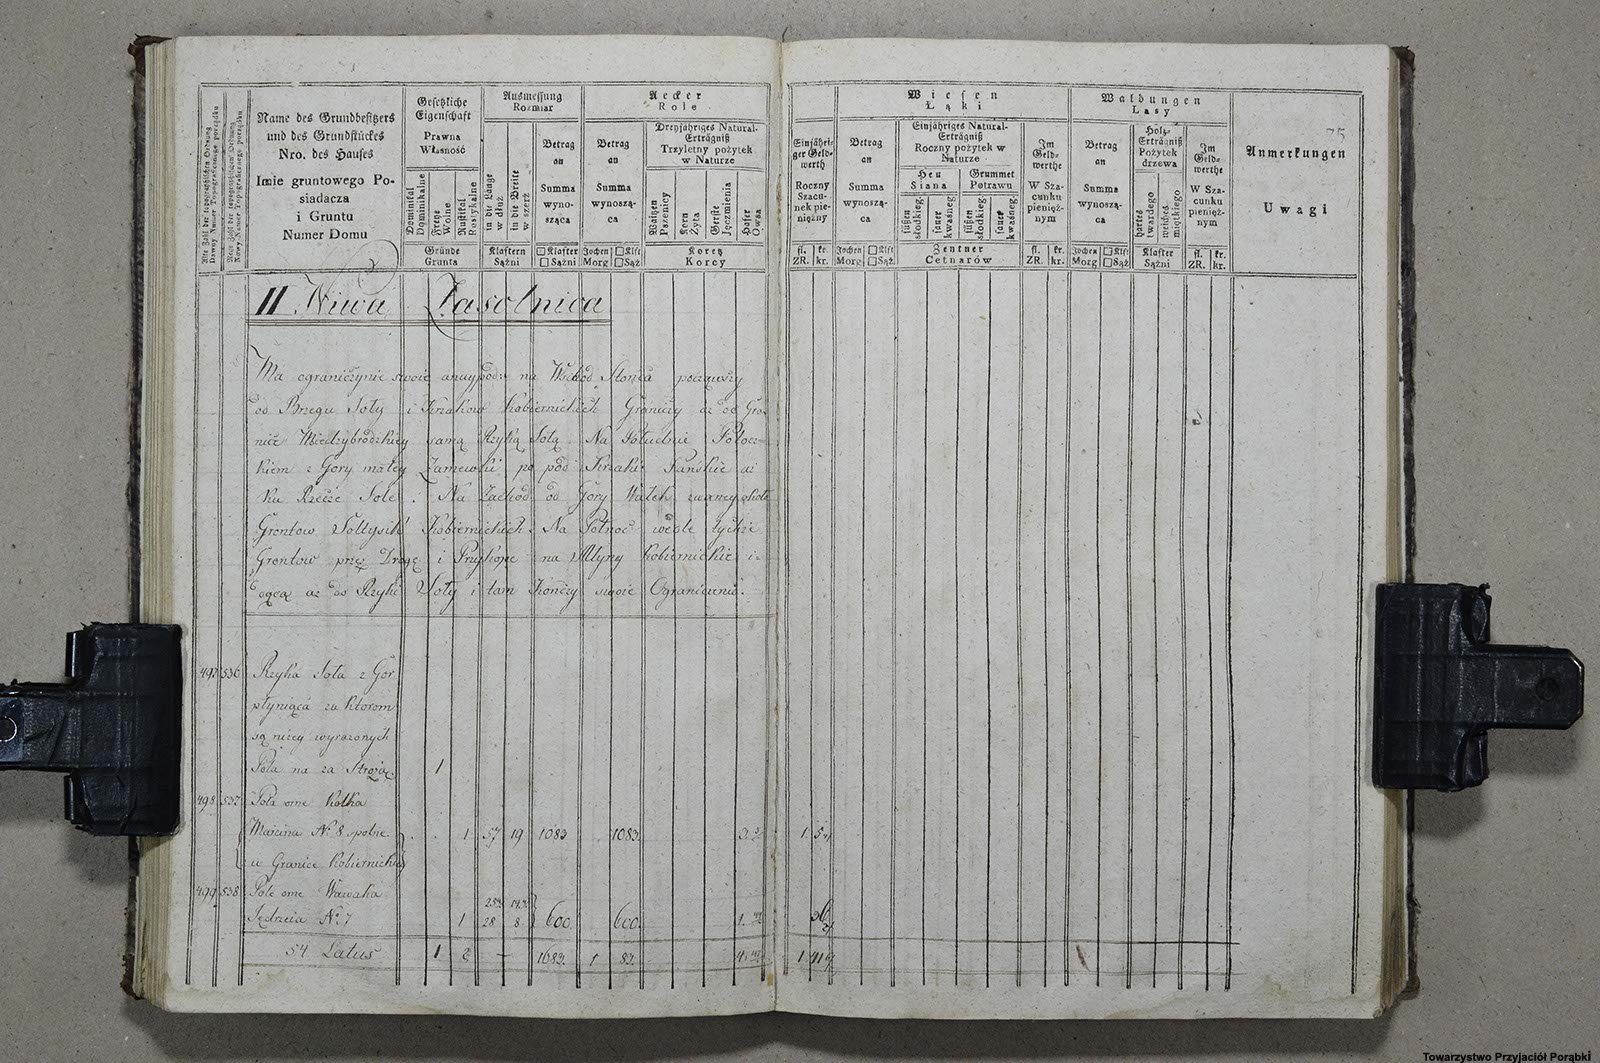 Alte Zahl der topographischen Ordnung
Dawny Numer Topograficznego porządku
Neue Zahl der topographischen Ordnung
Nowy Numer Topograficznego porządku
Name des Grundbesitzers
und des Grundstückes
Nro. des Hauses
Imie gruntowego Po-
siadacza
i Gruntu
Numer Domu
Gesetzliche
Eigenschaft
Prawna
Własność
Dominikal
Dominikalne
Freye
Wolne
Rustikal
Rustykalne
Gründe
Grunta
Ausmessung
Rozmiar
in die Länge
w dłuż
in die Breite
w szerz
Klaftern
Sążni
Betrag
an
Summa
wyno-
sząca
□ Klafter
□ Sążni
Aecker
Role
Betrag
an
Summa
wynoszą-
ca
Jochen □ Klft
Morg □ Sąż
Dreyjähriges Natural-
Erträgniß
Trzyletny pożytek
w Naturze
Waitzen
Pszenicy
Korn
Żyta
Gerste
Jęczmienia
Hafer
Owsa
Koretz
Korcy
Einjähri-
ger Geld-
werth
Roczny
Szacu-
nek pie-
niężny
fl. kr.
ZR. kr.
Wiesen
Łąki
Betrag
an
Summa
wynoszą-
ca
Jochen □ Klft
Morg □ Sąż
Einjähriges Natural-
Erträgniß
Roczny pożytek w
Naturze
Heu
Siana
Grummet
Potrawu
süßen
słodkieg.
saure
kwaśneg.
süßen
słodkieg.
saure
kwaśneg.
Zentner
Cetnarów
Im
Geld-
werthe
W Sza-
cunku
pienięż-
nym
fl. kr.
ZR. kr.
Waldungen
Lasy
Betrag
an
Summa
wynoszą-
ca
Jochen □ Klft
Morg □ Sąż
Holz-
Erträgniß
Pożytek
drzewa
hartes
twardego
weiches
miętkiego
Klafter
Sążni
Im
Geld-
werthe
W Sza-
cunku
pienięż-
nym
fl. kr.
ZR. kr.
75
Anmerkungen
Uwagi
II Niwa Zasolnica
Ma ograniczynie swoie na Wschod Słońca począwszy
od Brzegu Soły i Krzakow Kobiernickich Graniczy aż od Gra-
nic Miedzybrodzkiey samą Rzyką Sołą. Na Południe Potocz-
kiem z Gory małey po pod Krzaki Pańskie aż
ku Rzece Sole. Na Zachod od Gory Wałek zwaney
Grontow Sołtysik Kobiernickich. Na Połnoc wedle tychże
Grontow prze Drogę i Przykopę na Młyny Kobiernickie i-
dącą aż do Rzyki Soły i tam Konczy swoie Ograniczenie.
497 536 Rzyka Soła z Gor
płynąca za Ktorom
są niżey wyrazonych
Pola na za Strożą 1
498 537 Pola one Kolka
Marcina Nº 8 społne 1 57 19 1083 1083
w Granice Kobiernickie
499 538 Pole one Wawaka
Jędrzeia Nº 7 1 28 8 600 600
54 Latus 1 2 — 1683 1 83
Towarzystwo Przyjaciół Porąbki